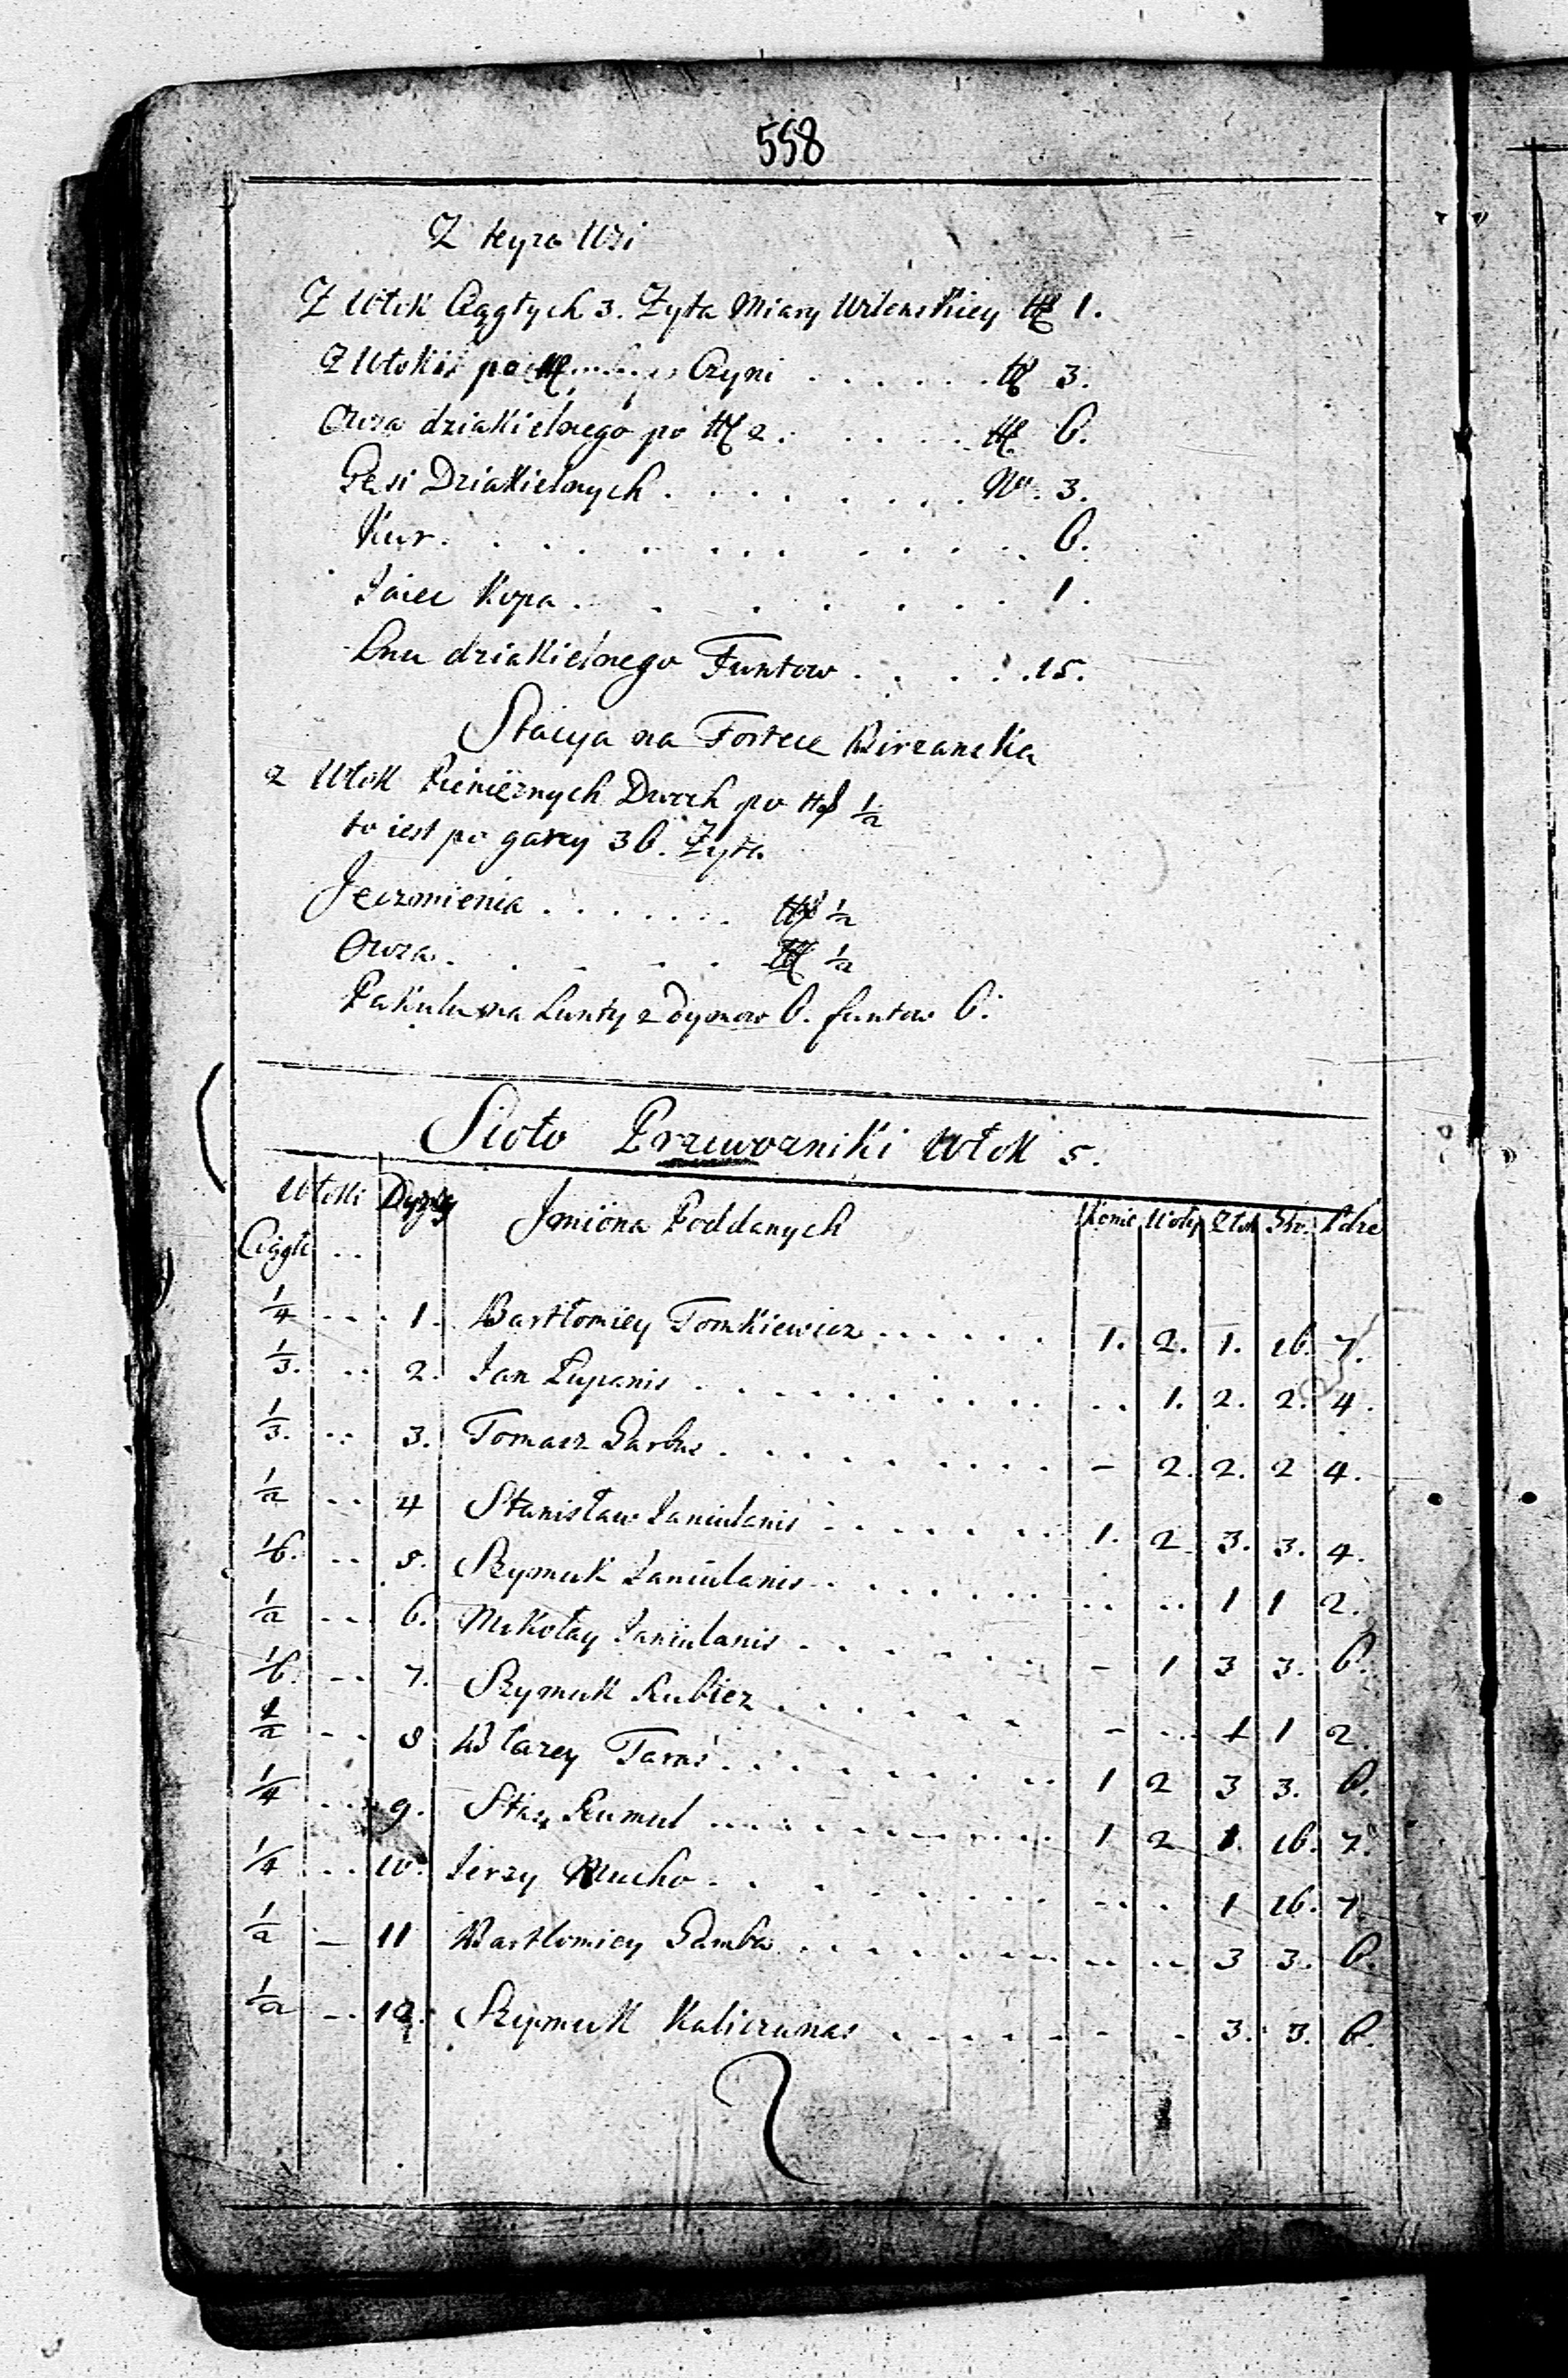 558
Z teyże Wsi
Z Włok Ciągłych 3. Żyta Miary Wileńskiey 1.
Z Włoki po Czyni . . . . . . 3.
Owsa dziakielnego po 2. . . . . 6.
Gęsi Dziakielnych . . . . . . . . No. 3.
Kur . . . . . . . . . . . . 6.
Jaiec Kopa . . . . . . . 1.
Lnu dziakielnego Funtow . . . . . 15.
Stacya na Fortece Birzanska
z Włok Pienięznych Dwoch po 1/2
to iest po garcy 36. Żyta
Jęczmienia . . . . . . . 1/2
Owsa . . . . . . 1/2
Pakulu na Lunty z Dymow 6. funtow 6.
Sioło Przewozniki Włok 5.
Włoki Dymy Imiona Poddanych Konie Woły Złot. Gro. Pdze
Ciągłe . .
1/4 . . . 1. Bartłomiey Tomkiewicz . . . . . . 1. 2. 1. 16. 7.
1/3. . . 2. Jan Pupanis . . . . . . . . . . . . 1. 2. 2. 4.
1/3. . . 3. Tomasz Garbus . . . . . . . . . - 2. 2. 2 4.
1/2 . . 4 Stanisław Janiulanis . . . . . . . 1. 2 3. 3. 4.
1/6. . . 5. Szymuk Janiulanis . . . . . . . . . . . 1 1 2.
1/2 . . 6. Mikołay Janiulanis . . . . . . . - 1 3 3. 6.
1/6. . . 7. Szymuk Kubicz . . . . . . - . . 1 1 2.
1/2 . . 8 Błazey Taras . . . . . . . . 1 2 3 3. 6.
1/4 . . 9. Stas . . . . . . . . . . 1 2 1. 16. 7.
1/4 . . 10. Jerzy Mucho . . . . . . . . . . . 1 16. 7
1/2 - 11 Bartłomiey Gamba . . . . . . . . . . . . 3 3. 6.
1/2 . . 12. Szymuk Kaliczunas . . . . . . - - 3. 3. 6.